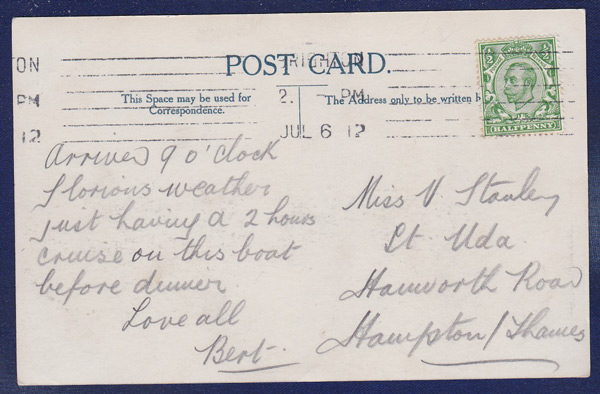 TON
PM
12
BRIGHTON
2. PM
JUL 6 12
POST CARD.
This Space may be used for
Correspondence.
The Address only to be written h
HALFPENNY
Arrived 9 o'clock
Glorious weather
just having a 2 hours
cruise on this boat
before dinner
Love all
Bert
Miss V Stanley
St Uda
Hanworth Road
Hampton/Thames